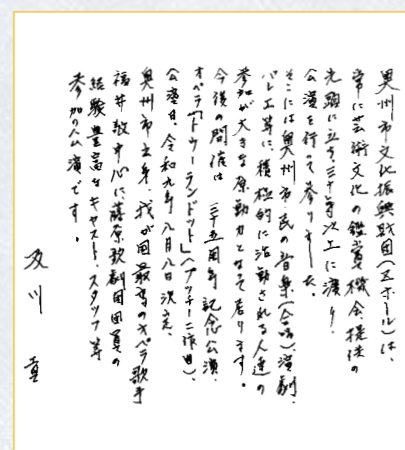 奥州市文化振興財団(Zホール)は、
常に芸術文化の鑑賞機会提供の
先頭に立ち三十年以上に渡り
公演を行って参りました。
そこには奥州市民の音楽(合唱)、演劇、
バレエ等に、積極的に活動される人達の
参加が大きな原動力となって居ります。
今後の開催は 三十五周年 記念公演、
オペラ「トゥーランドット」(プッチーニ作曲)、
公演日、令和九年 八月八日 決定、
奥州市出身、我が国最高のオペラ歌手
福井敬中心に藤原歌劇団団員の
経験豊富なキャスト、スタッフ等
参加の公演です。
及川